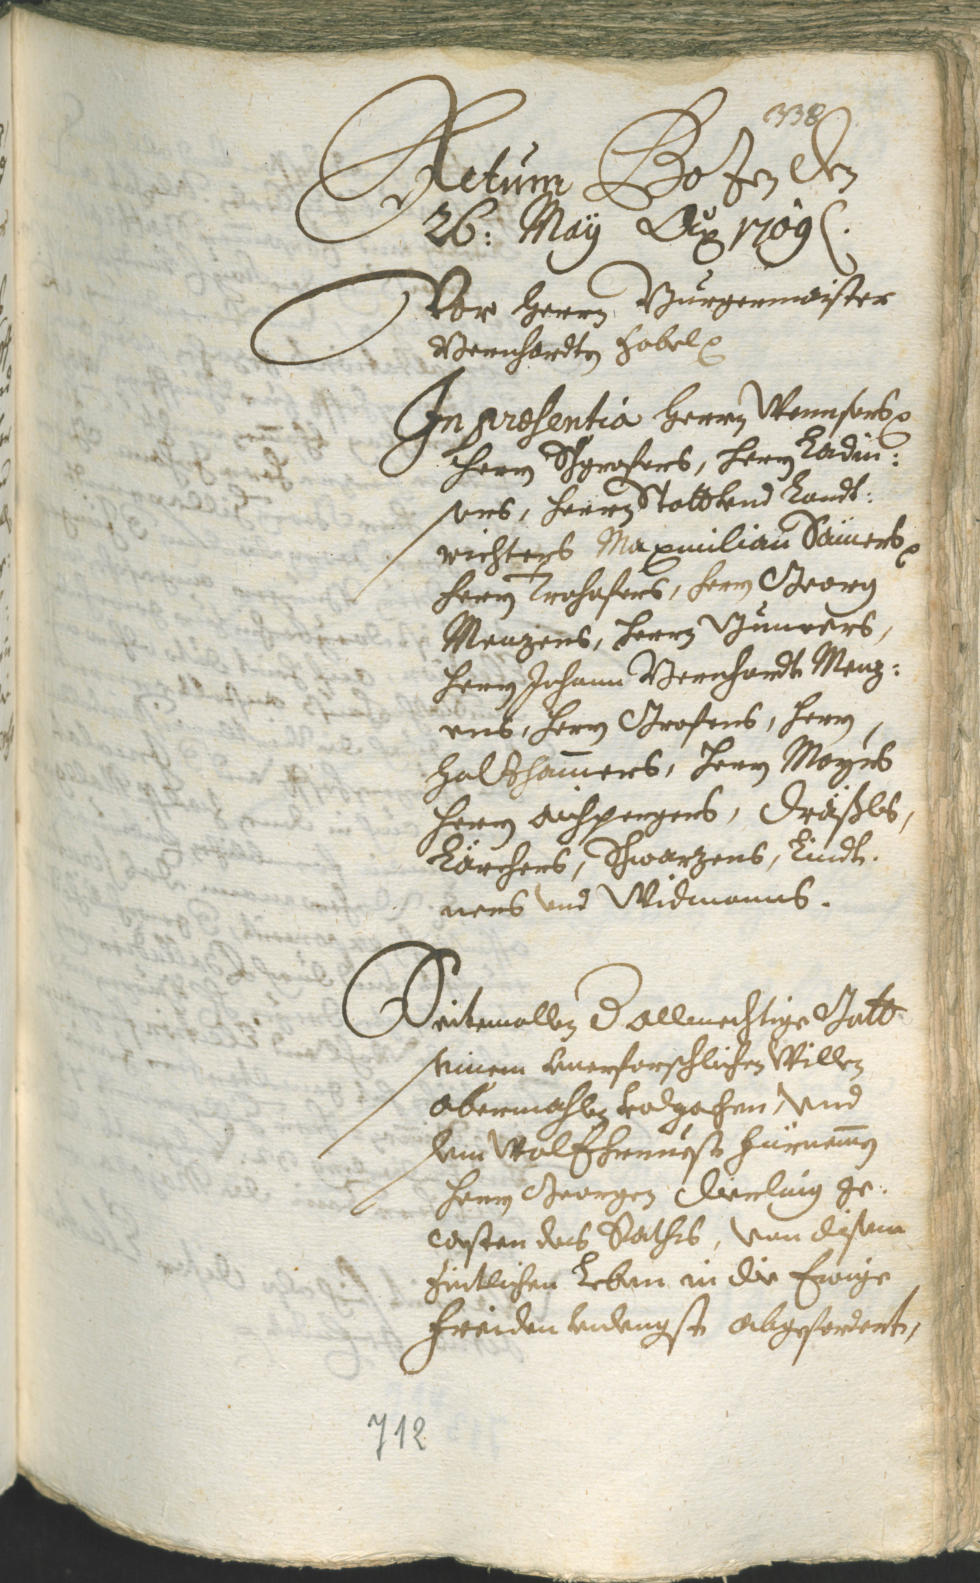 338
Actum Bozen den
26: Maÿ Aō 1709
Vor Herrn Burgermaister
Bernhardtn Zobel
In præsentia Herrn Wenser
Herrn Grafers, Herrn Ladin:
sers, Herrn Statt und Landt:
richters Maximilian Saüers
Herrn Trohofers, Herrn Georg
Menzens, Herrn Sumers,
Herrn Johann Bernhardt Menz:
ens, Herrn Grafens, Herrn
Holzhamers, Herrn Mayrs
Herrn Aichpergers, Dräxls,
Kärchers, Schwarzens, Lindt.
ners und Widmanns.
Seitemallen d allmechtige Gott
seinem unerforschlichen Willen
abermahlen und
dem Wolfürnemen
Herrn Georgen ge.
westen des Raths, von disem
zeitlichen Leben in die Ewige
Freiden abgefordert,
712